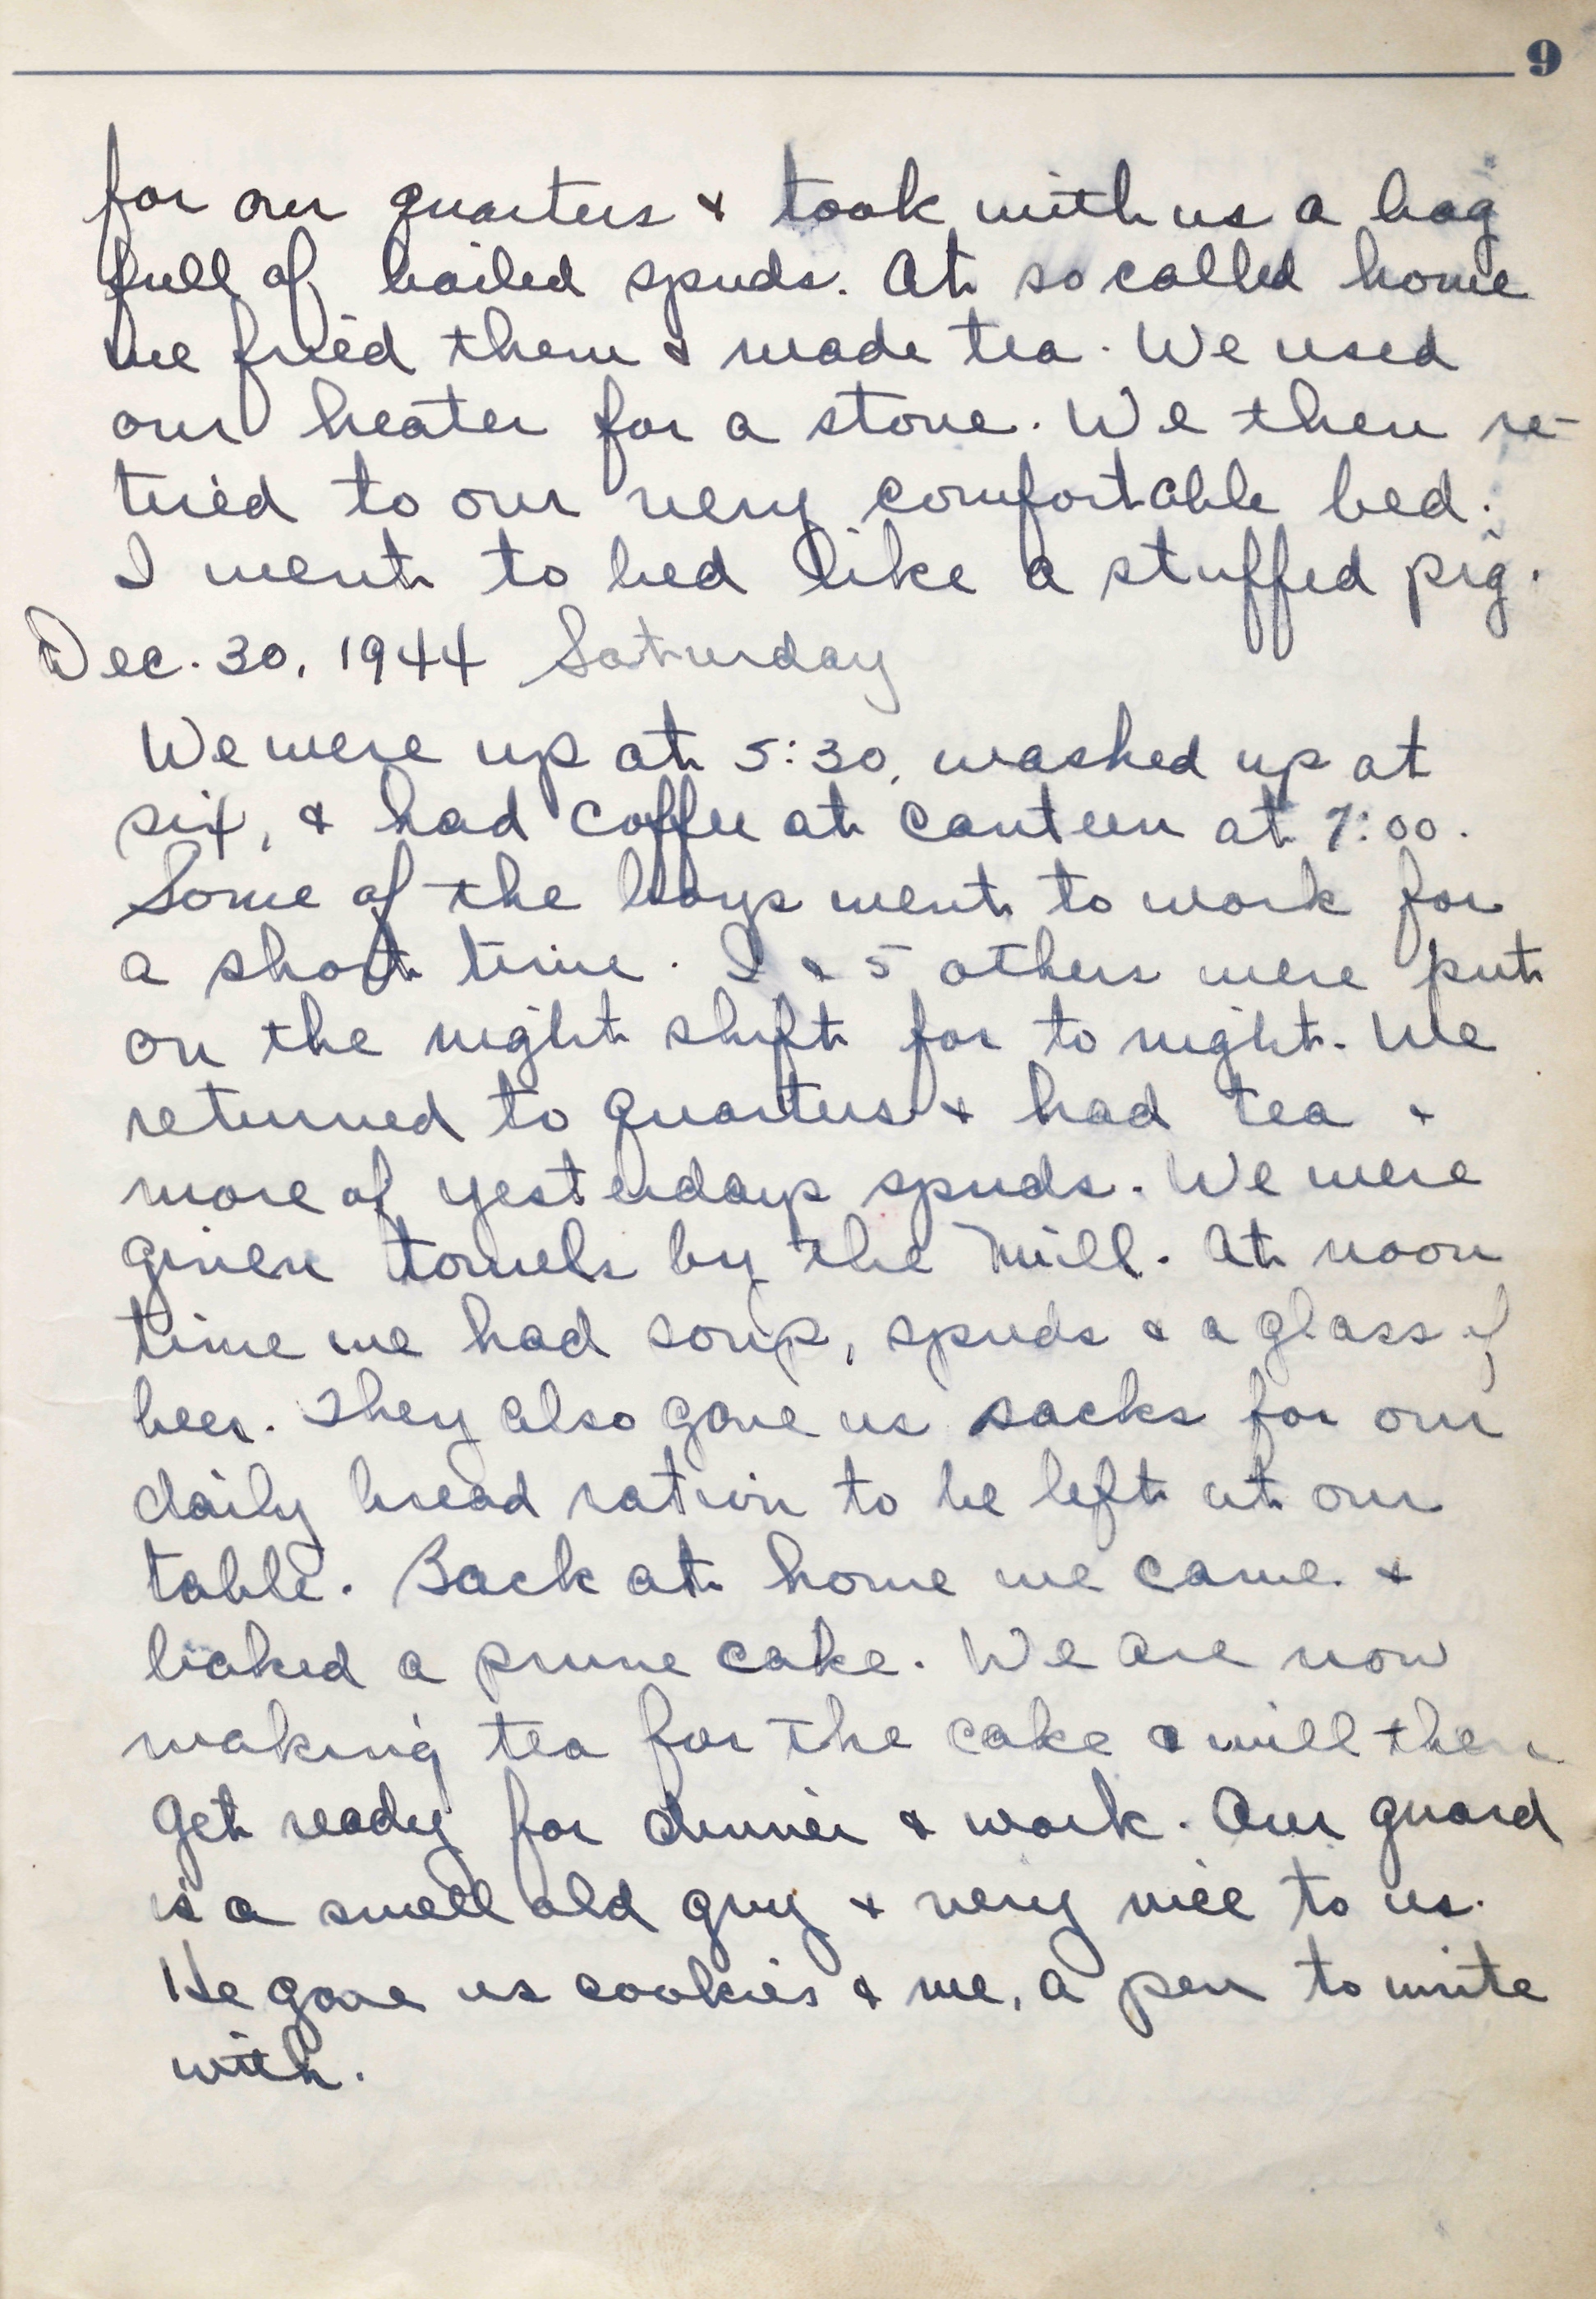 9
for our quarters & took with us a bag
full of boiled spuds. At so called home
we fried them & made tea. We used
our heater for a stove. We then re-
tired to our very comfortable bed.
I went to bed like a stuffed pig.
Dec. 30, 1944 Saturday
We were up at 5:30, washed up at
six, & had coffee at canteen at 7:00.
Some of the boys went to work for
a short time. I & 5 others were put
on the night shift for to night. We
returned to quarters & had tea &
more of yesterdays spuds. We were
given towels by the Mill. At noon
time we had soup, spuds & a glass of
beer. They also gave us sacks for our
daily bread ration to be left at our
table. Back at home we came &
baked a prune cake. We are now
making tea for the cake & will then
get ready for dinner & work. Our guard
is a swell old guy & very nice to us.
He gave us cookies & me, a pen to write
with.